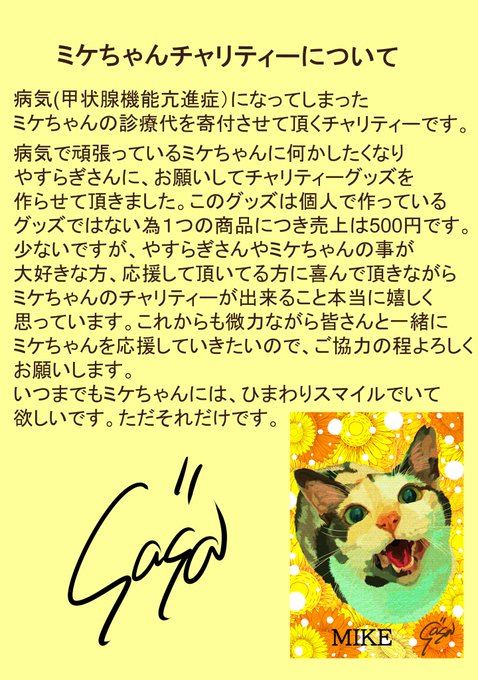 ミケちゃんチャリティーについて
病気(甲状腺機能亢進症）になってしまった
ミケちゃんの診療代を寄付させて頂くチャリティーです。
病気で頑張っているミケちゃんに何かしたくなり
やすらぎさんに、お願いしてチャリティーグッズを
作らせて頂きました。このグッズは個人で作っている
グッズではない為１つの商品につき売上は500円です。
少ないですが、やすらぎさんやミケちゃんの事が
大好きな方、応援して頂いてる方に喜んで頂きながら
ミケちゃんのチャリティーが出来ること本当に嬉しく
思っています。これからも微力ながら皆さんと一緒に
ミケちゃんを応援していきたいので、ご協力の程よろしく
お願いします。
いつまでもミケちゃんには、ひまわりスマイルでいて
欲しいです。ただそれだけです。
MIKE